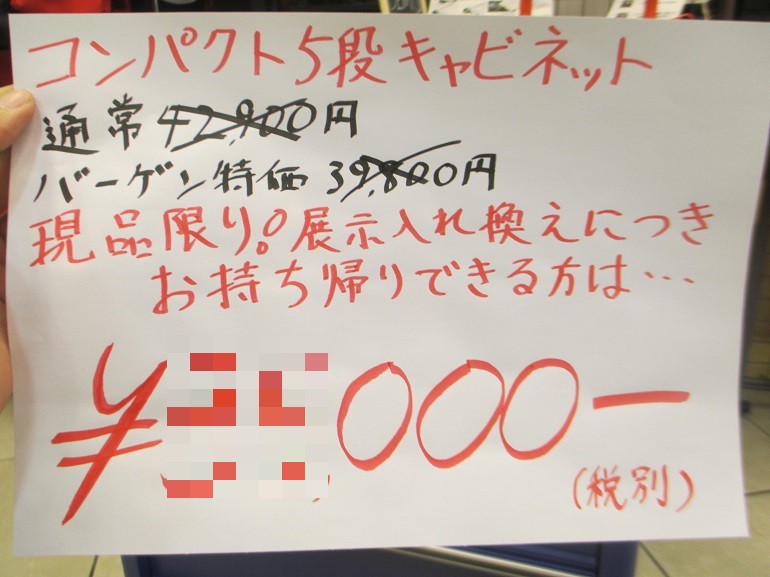 コンパクト5段キャビネット
通常 42,900円
バーゲン特価 39,800円
現品限り。展示入れ換えにつき
お持ち帰りできる方は…
¥ ,000ー
(税別)